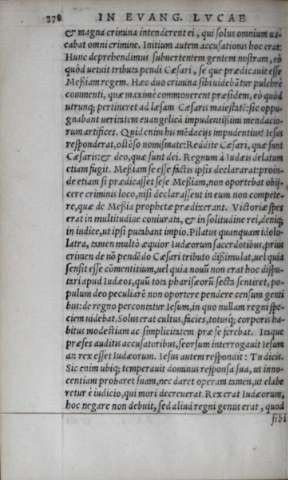 378 IN EVANG. LVCAE
& magna crimina intenderent ei, qui solus omnium va-
cabat omni crimine. Initium autem accusationis hoc erat:
Hunc deprehendimus subuertentem gentem nostram, eò
quòd vetuit tributa pendi Cæsari, se que prædicauit esse
Messiam regem. Hæc duo crimina sibi videbãtur pulchrè
commenti, quæ maximè commouerent præsidem, eò quòd
utrunq; pertineret ad læsam Cæsaris maiestatẽ: sic oppu-
gnabant ueritatem euangelicã impudentißimi mendacio-
rum artifices. Quid enim hu mẽdacijs impudentius? Iesus
responderat, olĩ sõso nomismate: Reddite Cæsari, quæ sunt
Cæsaris: & deo, quæ sunt dei. Regnum à Iudæis delatum
etiam fugit. Meßiam se esse factis ipsis declararat: proin-
de etiam si prædicasset sese Meßiam, non oportebat obij-
cere criminis loco, nisi declarassent in eum non compete-
re, quæ de Meßia prophetæ prædixerant. Victoriæ spes
erat in multitudine coniurata, & in solitudine rei, deniq;
in iudice, ut ipsi putabant impio. Pilatus quanquam idolo-
latra, tamen multò æquior Iudæorum sacerdotibus, prius
crimen de nõ pendẽdo Cæsari tributo dißimulat, uel quia
sensit esse cõmentitium, uel quia nouũ non erat hoc dispu-
tari apud Iudæos, quũ tota pharisæorũ secta sentiret, po-
pulum deo peculiarẽ non oportere pendere censum genti
bus: de regno percontatur Iesum, in quo nullam regni spe-
ciem uidebat. Solus erat cultus, facies, totusq; corporis ha-
bitus modestiam ac simplicitatem præ se ferebat. Itaque
præses auditis accusatoribus, seorsum interrogauit Iesum
an rex esset Iudæorum. Iesus autem respondit: Tu dicis.
Sic enim ubiq; temperauit dominus responsa sua, ut inno-
centiam probaret suam, nec daret operam tamen, ut elabe
retur è iudicio, qui mori decreuerat. Rex erat Iudæorum,
hoc negare non debuit, sed aliud regni genus erat, quod
sibi